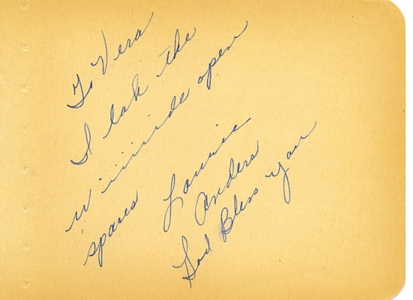 To Vera
I lak the
wiiiiide open
spaces Lonnie
Anders
God Bless you